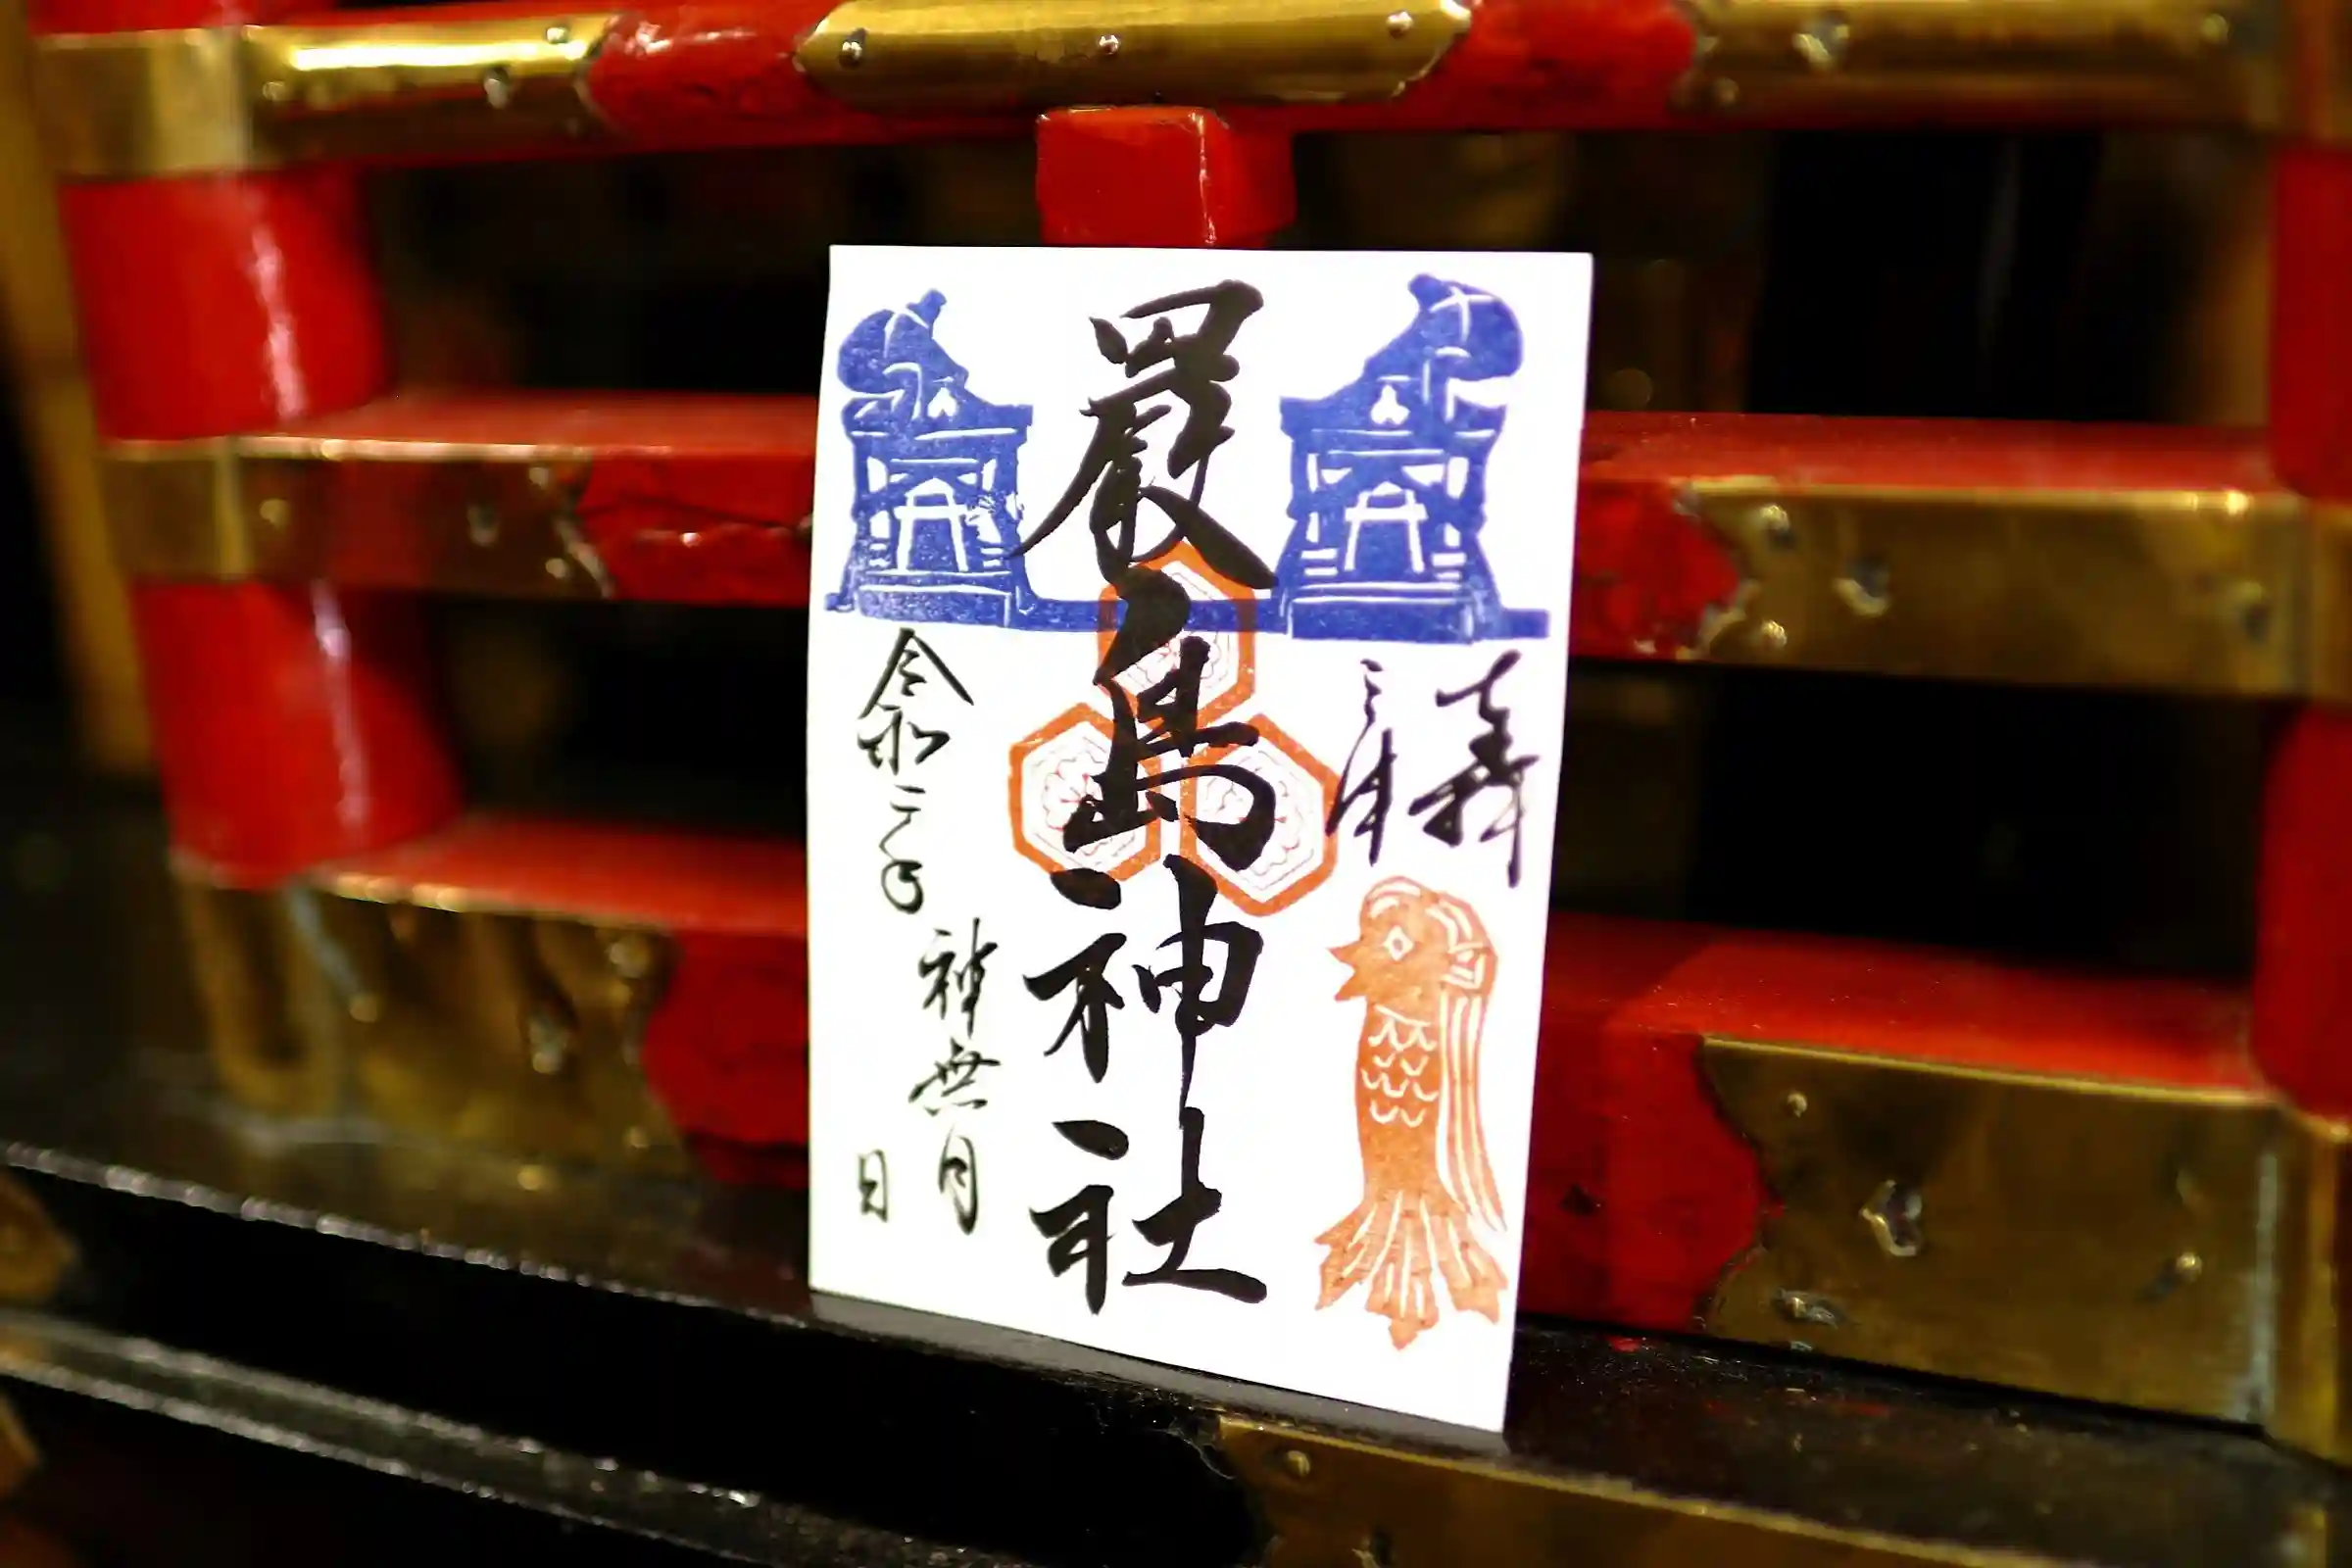 奉拝
三津
厳島神社
令和二年
神無月
日